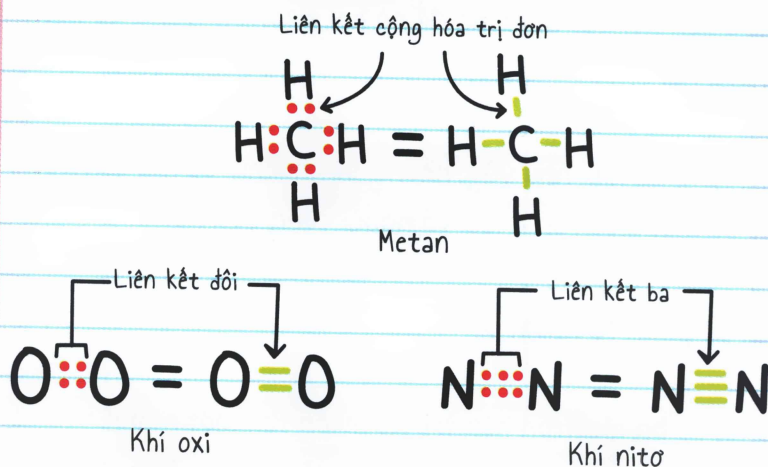 Liên kết cộng hóa trị đơn
H H
H:C:H = H-C-H
H H
Metan
Liên kết đôi
O::O = O=O
Khí oxi
Liên kết ba
N:::N = N≡N
Khí nitơ